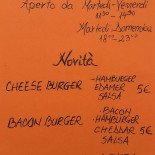 Aperto da Martedì-Venerdì
11:30 - 14:30
Martedì-Domenica
18:00-23:00
Novità
CHEESE BURGER -HAMBURGER
EDAMER 5€
SALSA
BACON BURGER -BACON
-HAMBURGER
CHEDDAR 5€
SALSA